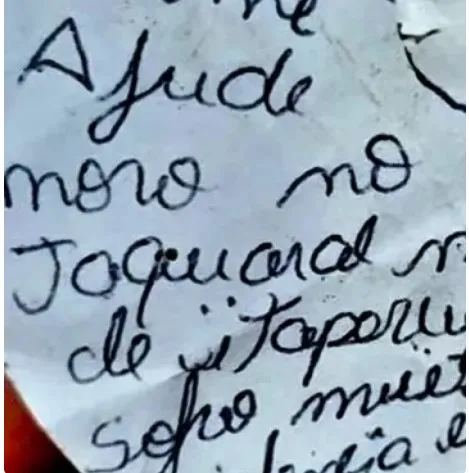 me
Ajude
moro no
Taquaral n
de itaperu
sofro muit